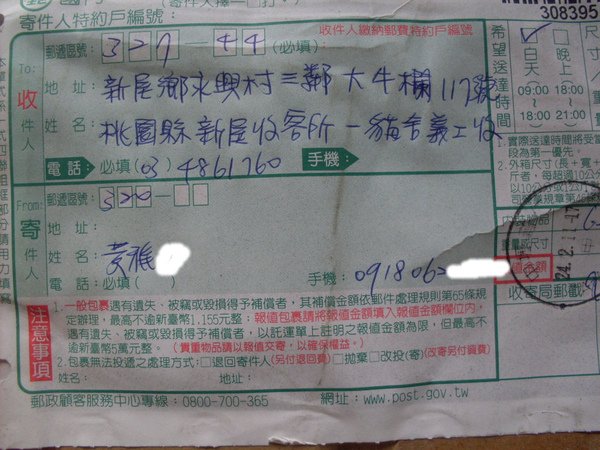 寄件人特約戶編號:
308395
收件人繳納郵費特約戶編號
To:
收件人
郵遞區號: 327-44 (必填)
地址: 新屋鄉永興村三鄰大牛欄117號
姓名: 桃園縣新屋收容所-貓舍義工收
電話: 必填(03) 4861760 手機:
希望送達時間
白天 晚上
09:00 18:00
18:00 21:00
From:
寄件人
郵遞區號: 320-
地址:
姓名: 黃雅
必填( ) 手機: 091806
1.實際送達時間將受
段為第一優先。
內容物品
重量或尺寸
報值金額
收寄局郵戳
24.2.11-17
注意事項
1.一般包裹遇有遺失、被竊或毀損得予補償者,其補償金額依郵件處理規則第65條規
定辦理,最高不逾新臺幣1,155元整。報值包裹請將報值金額填入報值金額欄位內,
遇有遺失、被竊或毀損得予補償者,以託運單上註明之報值金額為限,但最高不
逾新臺幣5萬元整。(貴重物品請以報值交寄,以確保權益。)
2.包裹無法投遞之處理方式:□退回寄件人(另付退回費)□拋棄□改投(寄)(改寄另付費)
姓名: 地址:
郵政顧客服務中心專線:0800-700-365 網址:www.post.gov.tw